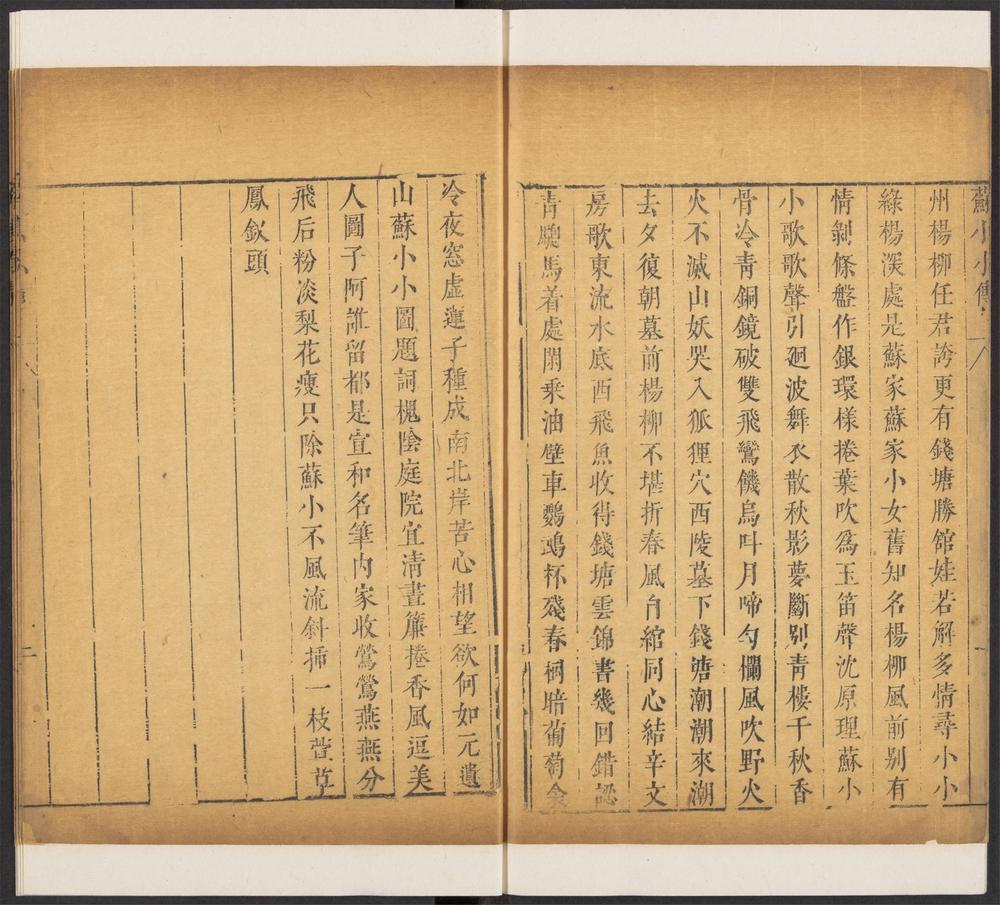 蘇小小傳
州楊柳任君誇更有錢塘勝館娃若解多情尋小小
綠楊深處是蘇家蘇家小女舊知名楊柳風前别有
情剝條盤作銀環樣捲葉吹爲玉笛聲沈原理蘇小
小歌歌聲引廻波舞衣散秋影夢斷别青樓千秋香
骨冷青銅鏡破雙飛鸞饑烏吽月啼勺欄風吹野火
火不滅山妖哭入狐狸穴西陵墓下錢塘潮潮來潮
去夕復朝墓前楊柳不堪折春風自綰同心結辛文
房歌東流水底西飛魚收得錢塘雲錦書幾回錯認
青驄馬着處閑乗油壁車鸚鵡杯殘春樹暗葡萄衾
冷夜窓虚蓮子種成南北岸苦心相望欲何如元遺
山蘇小小圖題詞槐陰庭院宜清晝簾捲香風逗美
人圖子阿誰留都是宣和名筆内家收鶯鶯燕燕分
飛后粉淡梨花瘦只除蘇小不風流斜揷一枝萱草
鳳釵頭